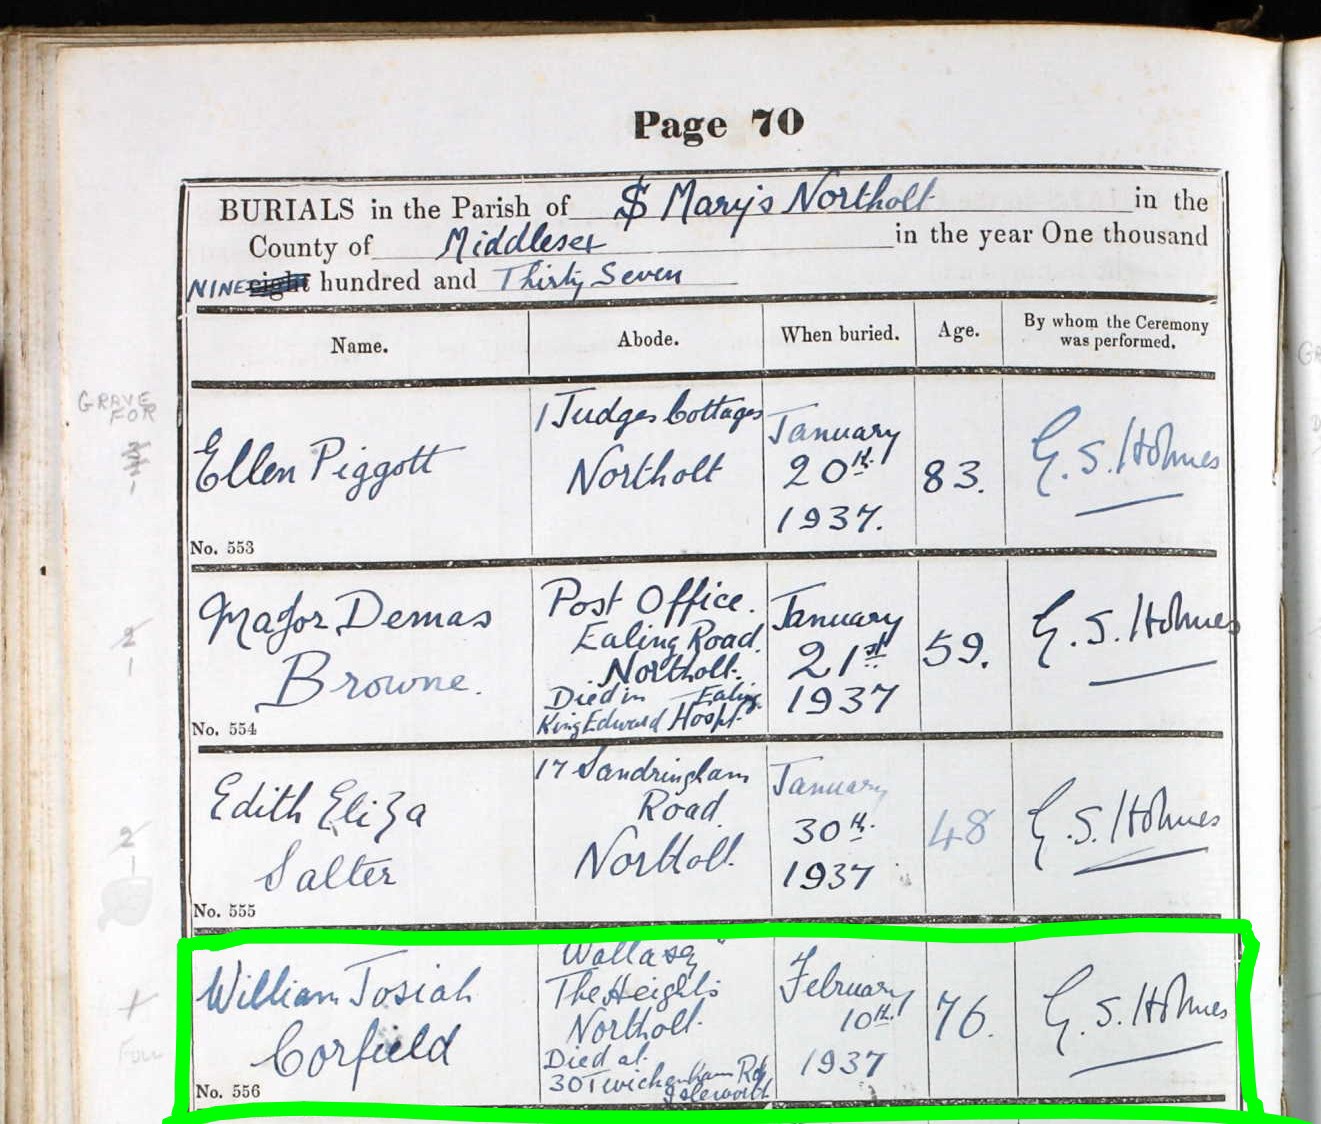 Page 70
BURIALS in the Parish of St Mary's Northolt in the
County of Middlesex in the year One thousand
NINE eight hundred and Thirty Seven
Name. Abode. When buried. Age. By whom the Ceremony was performed.
GRAVE
FOR
Ellen Piggott
1 Judges Cottages
Northolt
January
20th
1937.
83.
G. S. Holmes
No. 553
2
1
Major Demas
Browne.
Post Office.
Ealing Road.
Northolt.
Died in Ealing
King Edward Hospt.
January
21st
1937
59.
G. S. Holmes
No. 554
2
1
Edith Eliza
Salter
17 Sandringham
Road.
Northolt.
January
30th.
1937
48
G. S. Holmes
No. 555
William Josiah
Corfield
Wallasey"
The Heights
Northolt.
Died at.
30 Twickenham Rd
Isleworth
February
10th.
1937
76.
G. S. Holmes
No. 556